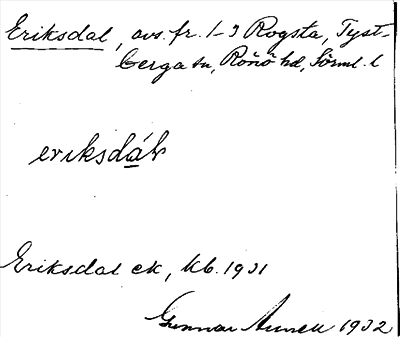 Eriksdal, avs. fr. 1-3 Rogsta, Tyst-
berga sn, Rönö hd, Sörml. l
eriksdáɫ
Eriksdal ek, kb. 1931
Gunnar 1932